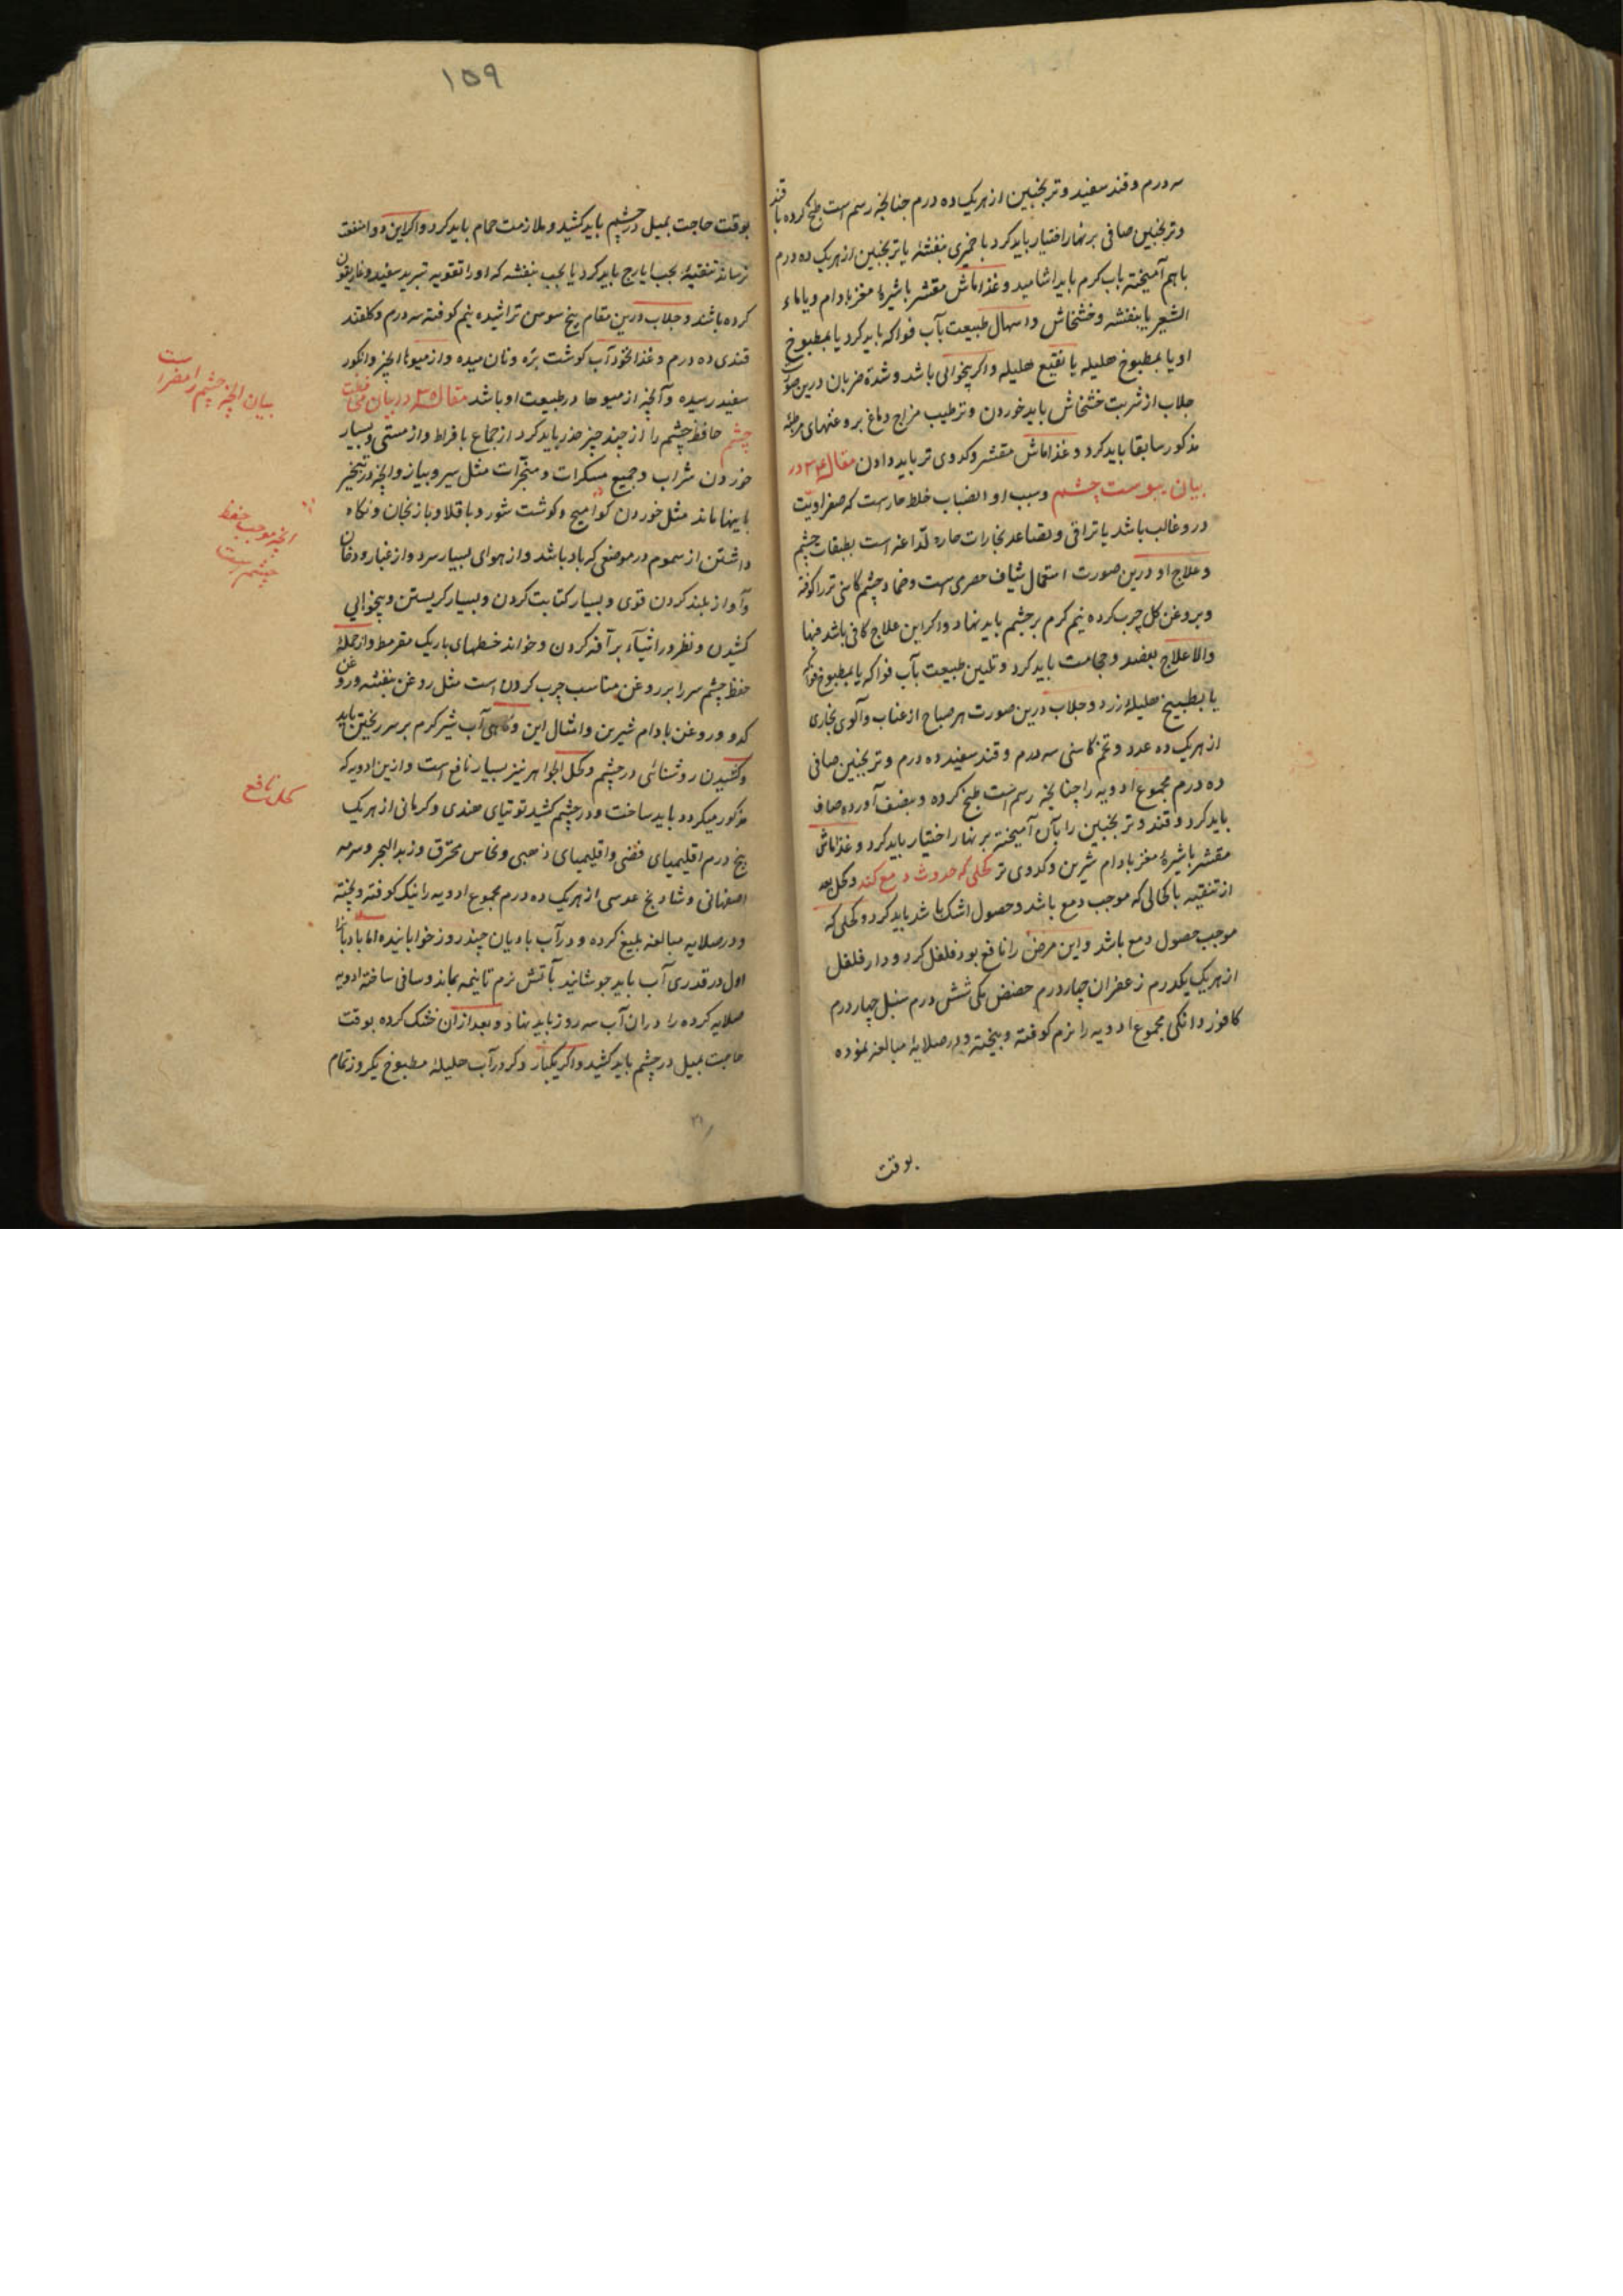 سه درم و قند سفید و ترنجبین از هریک ده درم چنانچه رسم است طبخ کرده با قند
و ترنجبین صافی بر نهار اختیار باید کرد با خمیری بنفشه یا ترنجبین از هریک ده درم
باهم آمیخته باب کرم باید اشامید و غذا ماش مقشر با شیرهٔ مغز بادام و یا ماء
الشعیر با بنفشه و خشخاش و اسهال طبیعت بآب فواکه باید کرد یا بمطبوخ
او یا بمطبوخ هلیله یا نقیع هلیله و اکر بیخوابی باشد و شدة ضربان درین صورت
جلاب از شربت خشخاش باید خوردن و ترطیب مزاج دماغ بروغنهای مرطبه
مذکور سابقا باید کرد و غذا ماش مقشر و کدوی تر باید دادن مقاله ۳۴ در
بیان یبوست چشم و سبب او انصباب خلط حار است که صفراویّت
درو غالب باشد یا تراقی و تصاعد بخارات حاره لذّاعه است بطبقات چشم
و علاج او درین صورت استعمال شیاف حصری است و ضماد چشم کاسنی تر را کوفته
و بروغن کل چرب کرده نیم کرم بر چشم باید نهاد و اکر این علاج کافی باشد فبها
والا علاج بفصد و حجامت باید کرد و تلیین طبیعت بآب فواکه یا بمطبوخ فواکه
یا بطبیخ هلیلهٔ زرد و جلاب درین صورت هر صباح از عناب و آلوی بخاری
از هریک ده عدد و تخم کاسنی سه درم و قند سفید ده درم و ترنجبین صافی
ده درم مجموع ادویه را چنانچه رسم است طبخ کرده و بنصف آورده صاف
باید کرد و قند و ترنجبین را بآن آمیخته بر نهار اختیار باید کرد و غذا ماش
مقشر با شیرهٔ مغز بادام شیرین و کدوی تر کحلی که حدوث دمع کند و کحل بعد
از تنقیه با کحالی که موجب دمع باشد و حصول اشک باشد باید کرد و کحلی که
موجب حصول دمع باشد و این مرض را نافع بود فلفل کرد و دار فلفل
از هریک یکدرم زعفران چهار درم حضض مکی شش درم سنبل چهار درم
کافور دانکی مجموع ادویه را نرم کوفته و بیخته و در صلایهٔ مبالغه نموده
بوقت
۱۵۹
بوقت حاجت بمیل در چشم باید کشید و ملازمت حمام باید کرد و اکر این دوا منفعت
نرساند تنقیهٔ بحب ایارج باید کرد یا بحب بنفشه که اورا تقویه تبربد سفید و غاریقون
کرده باشند و جلاب درین مقام بیخ سوسن تراشیده نیم کوفته سه درم و کلقند
قندی ده درم و غذا نخود آب کوشت بره و نان میده و از میوها انجیر و انکور
سفید رسیده و آنچه از میوها در طبیعت او باشد مقاله ۳۵ در بیان محافظت
چشم حافظ چشم را از چند چیز حذر باید کرد از جماع بافراط و از مستی و بسیار
خوردن شراب و جمیع مسکرات و مبخرات مثل سیر و پیاز و آنچه در تبخیر
باینها ماند مثل خوردن کوامیح و کوشت شور و باقلا و بازنجان و نکاه
داشتن از سموم در موضعی که باد باشد و از هوای بسیار سرد و از غبار و دخان
و آواز بلند کردن قوی و بسیار کتابت کردن و بسیار کریستن و بیخوابی
کشیدن و نظر در اشیاء براقه کردن و خواند خطهای باریک مقرمط و از جملهٔ
حفظ چشم سر را بروغن مناسب چرب کردن است مثل روغن بنفشه و روغن
کدو و روغن بادام شیرین و امثال این و کاهی آب شیر کرم بر سر ریختن باید
و کشیدن روشنائی در چشم و کحل الجواهر نیز بسیار نافع است و ازین ادویه که
مذکور میکردد باید ساخت و در چشم کشید توتیای هندی و کرمانی از هریک
پنج درم اقلیمیای فضی و اقلیمیای ذهبی و نحاس محترق و زبد البحر و سرمه
اصفهانی و شادنج عدسی از هریک ده درم مجموع ادویه را نیک کوفته و بیخته
و در صلایه مبالغه بلیغ کرده و در آب بادیان چند روز خوابانیده اما بادیانرا
اول در قدری آب باید جوشانید بآتش نرم تا نیمه بماند و صافی ساخته ادویه
صلایه کرده را در آن آب سه روز باید نهاد و بعد ازان خشک کرده بوقت
حاجت بمیل در چشم باید کشید و اکر یکبار دکر در آب هلیلهٔ مطبوخ یکروز تمام
بیان انچه چشم را مضر است
انچه موجب حفظ
چشم است
کحل نافع